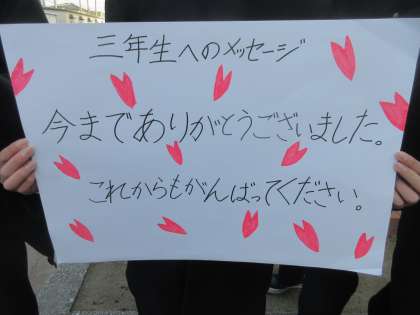 三年生へのメッセージ
今までありがとうございました。
これからもがんばってください。